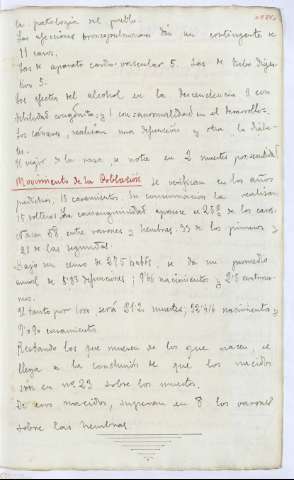 la patología del pueblo.
Las afecciones broncopulmonares dan un contingente de
11 casos.
Las de aparato cardio-vascular 5. Las de tubo diges-
tivo 5.
Los efectos del alcohol en la descendencia 2 con
debilidad congénita, y 1 con anormalidad en el desarrollo.
Los cánceres, realizan una defunción y otra la diabe-
tes.
El vigor de la raza se nota en 2 muertes por senilidad
Movimiento de la Población se verifican en los años
predichos, 18 casamientos. Sin consanguinidad la realizan
15 solteros. La consanguinidad aparece el 25% de los casos.
Nacen 58 entre varones y hembras. 33 de los primeros y
25 de las segundas.
Bajo un censo de 275 habts. se da un promedio
anual de defunciones; nacimientos y casamien-
tos.
El tanto por 100 será 21'2 muertes; nacimientos y
casamientos.
Restando los que mueren de los que nacen, se
llega a la conclusión de que los nacidos
son en nº 23 sobre los muertos.
De esos nacidos, superan en 8 los varones
sobre las hembras